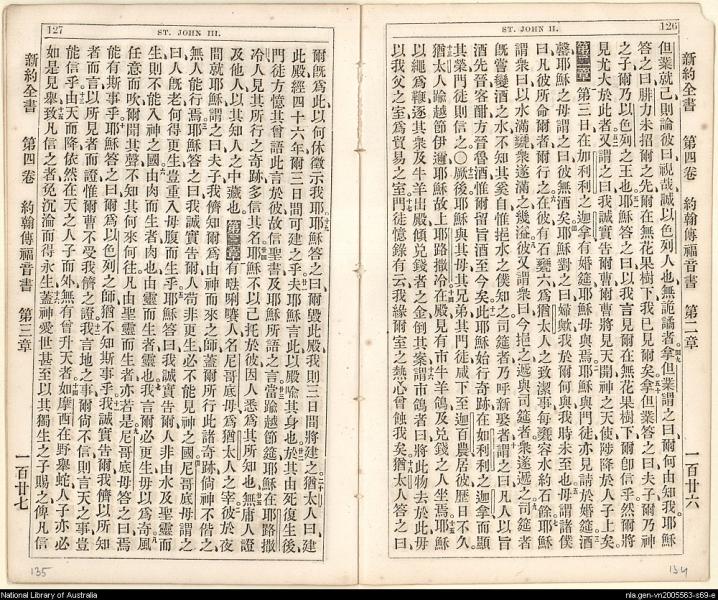 126
ST. JOHN II.
新約全書 第四卷 約翰傳福音書 第二章 一百廿六
但業就己則論彼曰視哉誠以色列人也無詭譎者拿但業謂之曰爾何由知我耶穌
答之曰腓力未招爾之先爾在無花果樹下我已見爾矣拿但業答之曰夫子爾乃神
之子爾乃以色列之王也耶穌答之曰以我言見爾在無花果樹下爾卽信乎然爾將
見尤大於此者又謂之曰我誠實告爾曹爾曹將見天開神之天使陟降於人子上矣
第二章 第三日在加利利之迦拿有婚筵耶穌母與焉耶穌與門徒亦見請於婚筵酒
罄耶穌之母謂之曰彼無酒矣耶穌對之曰婦歟我於爾何與我時未至也母謂諸僕
曰凡彼所命爾者爾行之在彼有石甕六爲猶太人之致潔事每甕容水約石餘耶穌
謂衆曰以水滿甕衆遂滿之幾溢彼又謂衆曰今挹之遞與司筵者衆遂遞之司筵者
既嘗變酒之水不知其奚自惟挹水之僕知之司筵者乃呼新娶者謂之曰凡人以旨
酒先晉客酣方晉魯酒惟爾留旨酒至今矣此耶穌始行奇跡在加利利之迦拿而顯
其榮門徒則信之〇厥後耶穌與其母其兄弟其門徒咸下至迦百農居彼歷日不久
猶太人踰越節伊邇耶穌故上耶路撒冷在殿見有市牛羊鴿及兌錢之人坐焉耶穌
以繩爲鞭逐其衆及牛羊出殿傾兌錢者之金倒其案謂市鴿者曰將此物去於此毋
以我父之室爲貿易之室門徒憶錄有云我緣爾室之熱心曾蝕我矣猶太人答之曰
134
127
ST. JOHN III.
爾既爲此以何休徵示我耶耶穌答之曰爾毀此殿我則三日間將建之猶太人曰建
此殿經四十六年爾三日間可建之乎夫耶穌言此以殿喩其身也於其由死復生後
門徒方憶其曾語此言於彼故信聖書及耶穌所語之言當踰越節筵耶穌在耶路撒
冷人見其所行之奇跡多信其名耶穌不以己托於彼因人悉爲其所知也無庸人證
及他人以其知人之中藏也 第三章 有𠵽唎㘔人名尼哥底母爲猶太人之宰彼於夜
間就耶穌謂之曰夫子我儕知爾爲由神而來之師蓋爾所行此諸奇跡倘神不偕之
無人能行焉耶穌答之曰我誠實告爾人苟非更生必不能見神之國尼哥底母謂之
曰人既老何得更生豈重入母腹而生乎耶穌答曰我誠實告爾人非由水及聖靈而
生則不能入神之國由肉而生者肉也由靈而生者靈也我言爾必更生毋以爲奇風
任意而吹爾聞其聲不知其何來何往凡由聖靈而生者亦若是尼哥底母答之曰焉
能有斯事乎耶穌答之曰爾爲以色列之師猶不知斯事乎我誠實告爾我儕以所知
者而言以所見者而證惟爾曹不受我儕之證我言地之事爾尙不信則言天之事豈
能信乎由天而降依然在天之人子而外無有曾升天者如摩西在野舉蛇人子亦必
如是見舉致凡信之者免沉淪而得永生蓋神愛世甚至以其獨生之子賜之俾凡信
新約全書 第四卷 約翰傳福音書 第三章 一百廿七
135
National Library of Australia
nla.gen-vn2005563-s69-e